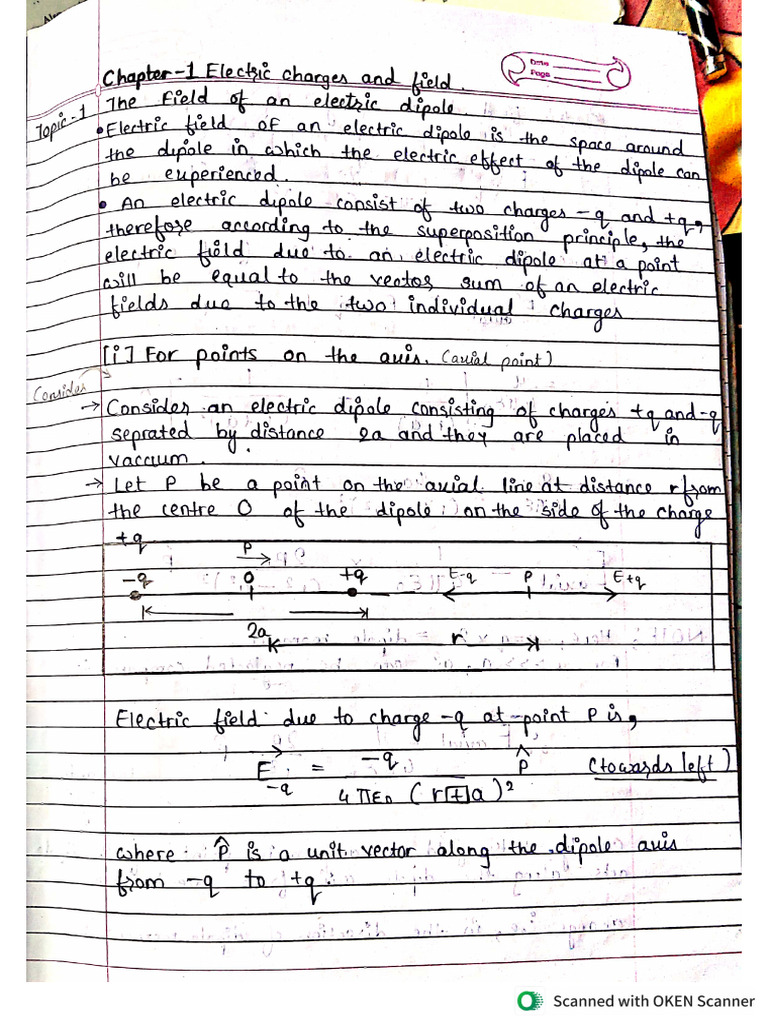 Date
Page
Chapter-1 Electric charges and field.
Topic-1
The Field of an electric dipole.
• Electric field of an electric dipole is the space around
the dipole in which the electric effect of the dipole can
be experienced.
• An electric dipole consist of two charges -q and +q,
therefore according to the superposition principle, the
electric field due to an electric dipole at a point
will be equal to the vector sum of an electric
fields due to the two individual charges
[i] For points on the axis. (axial point)
Consider
→ Consider an electric dipole consisting of charges +q and -q
seprated by distance 2a and they are placed in
vaccum.
→ Let P be a point on the axial line at distance r from
the centre O of the dipole on the side of the charge
+q
P
-q O +q E-q P E+q
2a r
Electric field due to charge -q at point P is,
E-q = -q / 4πε0 (r+a)² p̂ (towards left)
where p̂ is a unit vector along the dipole axis
from -q to +q.
Scanned with OKEN Scanner